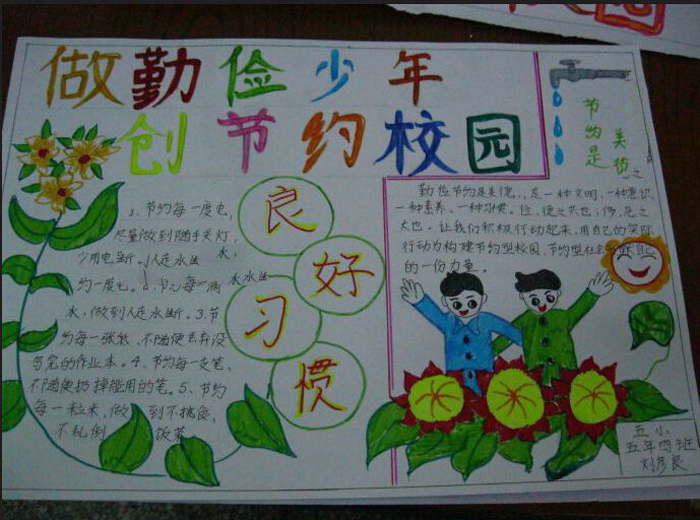 做勤俭少年
创节约校园
节约是
美德
1、节约每一度电,
尽量做到随手关灯,
水,做到人走水断。3、节
约每一张纸,不随便丢弃没
写完的作业本。4、节约每一支笔,
不随便扔掉能用的笔。5、节约
每一粒米,做到不挑食,
不乱倒饭菜
良
好
习
惯
勤俭节约是美德,是一种文明、一种意识
一种素养、一种习惯。俭,德之共也;侈,恶之
大也。让我们积极行动起来,用自己的实际
行动为构建节约型校园、节约型社会
的一份力量。
五小
五年四班